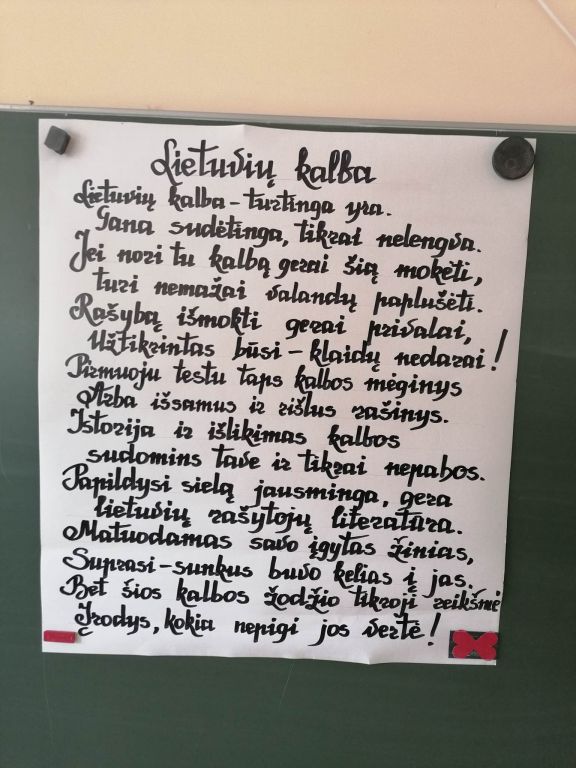 Lietuvių kalba
Lietuvių kalba - turtinga yra.
Gana sudėtinga, tikrai nelengva.
Jei nori tu kalbą gerai šią mokėti,
turi nemažai valandų paplušėti.
Rašybą išmokti gerai privalai,
Užtikrintas būsi - klaidų nedarai!
Pirmuoju testu taps kalbos mėginys
Arba išsamus ir rišlus rašinys.
Istorija ir išlikimas kalbos
sudomins tave ir tikrai nepabos.
Papildysi sielą jausminga, gera
lietuvių rašytojų literatūra.
Matuodamas savo įgytas žinias,
Suprasi - sunkus buvo kelias į jas.
Bet šios kalbos žodžio tikroji reikšmė
Įrodys, kokia nepigi jos vertė!